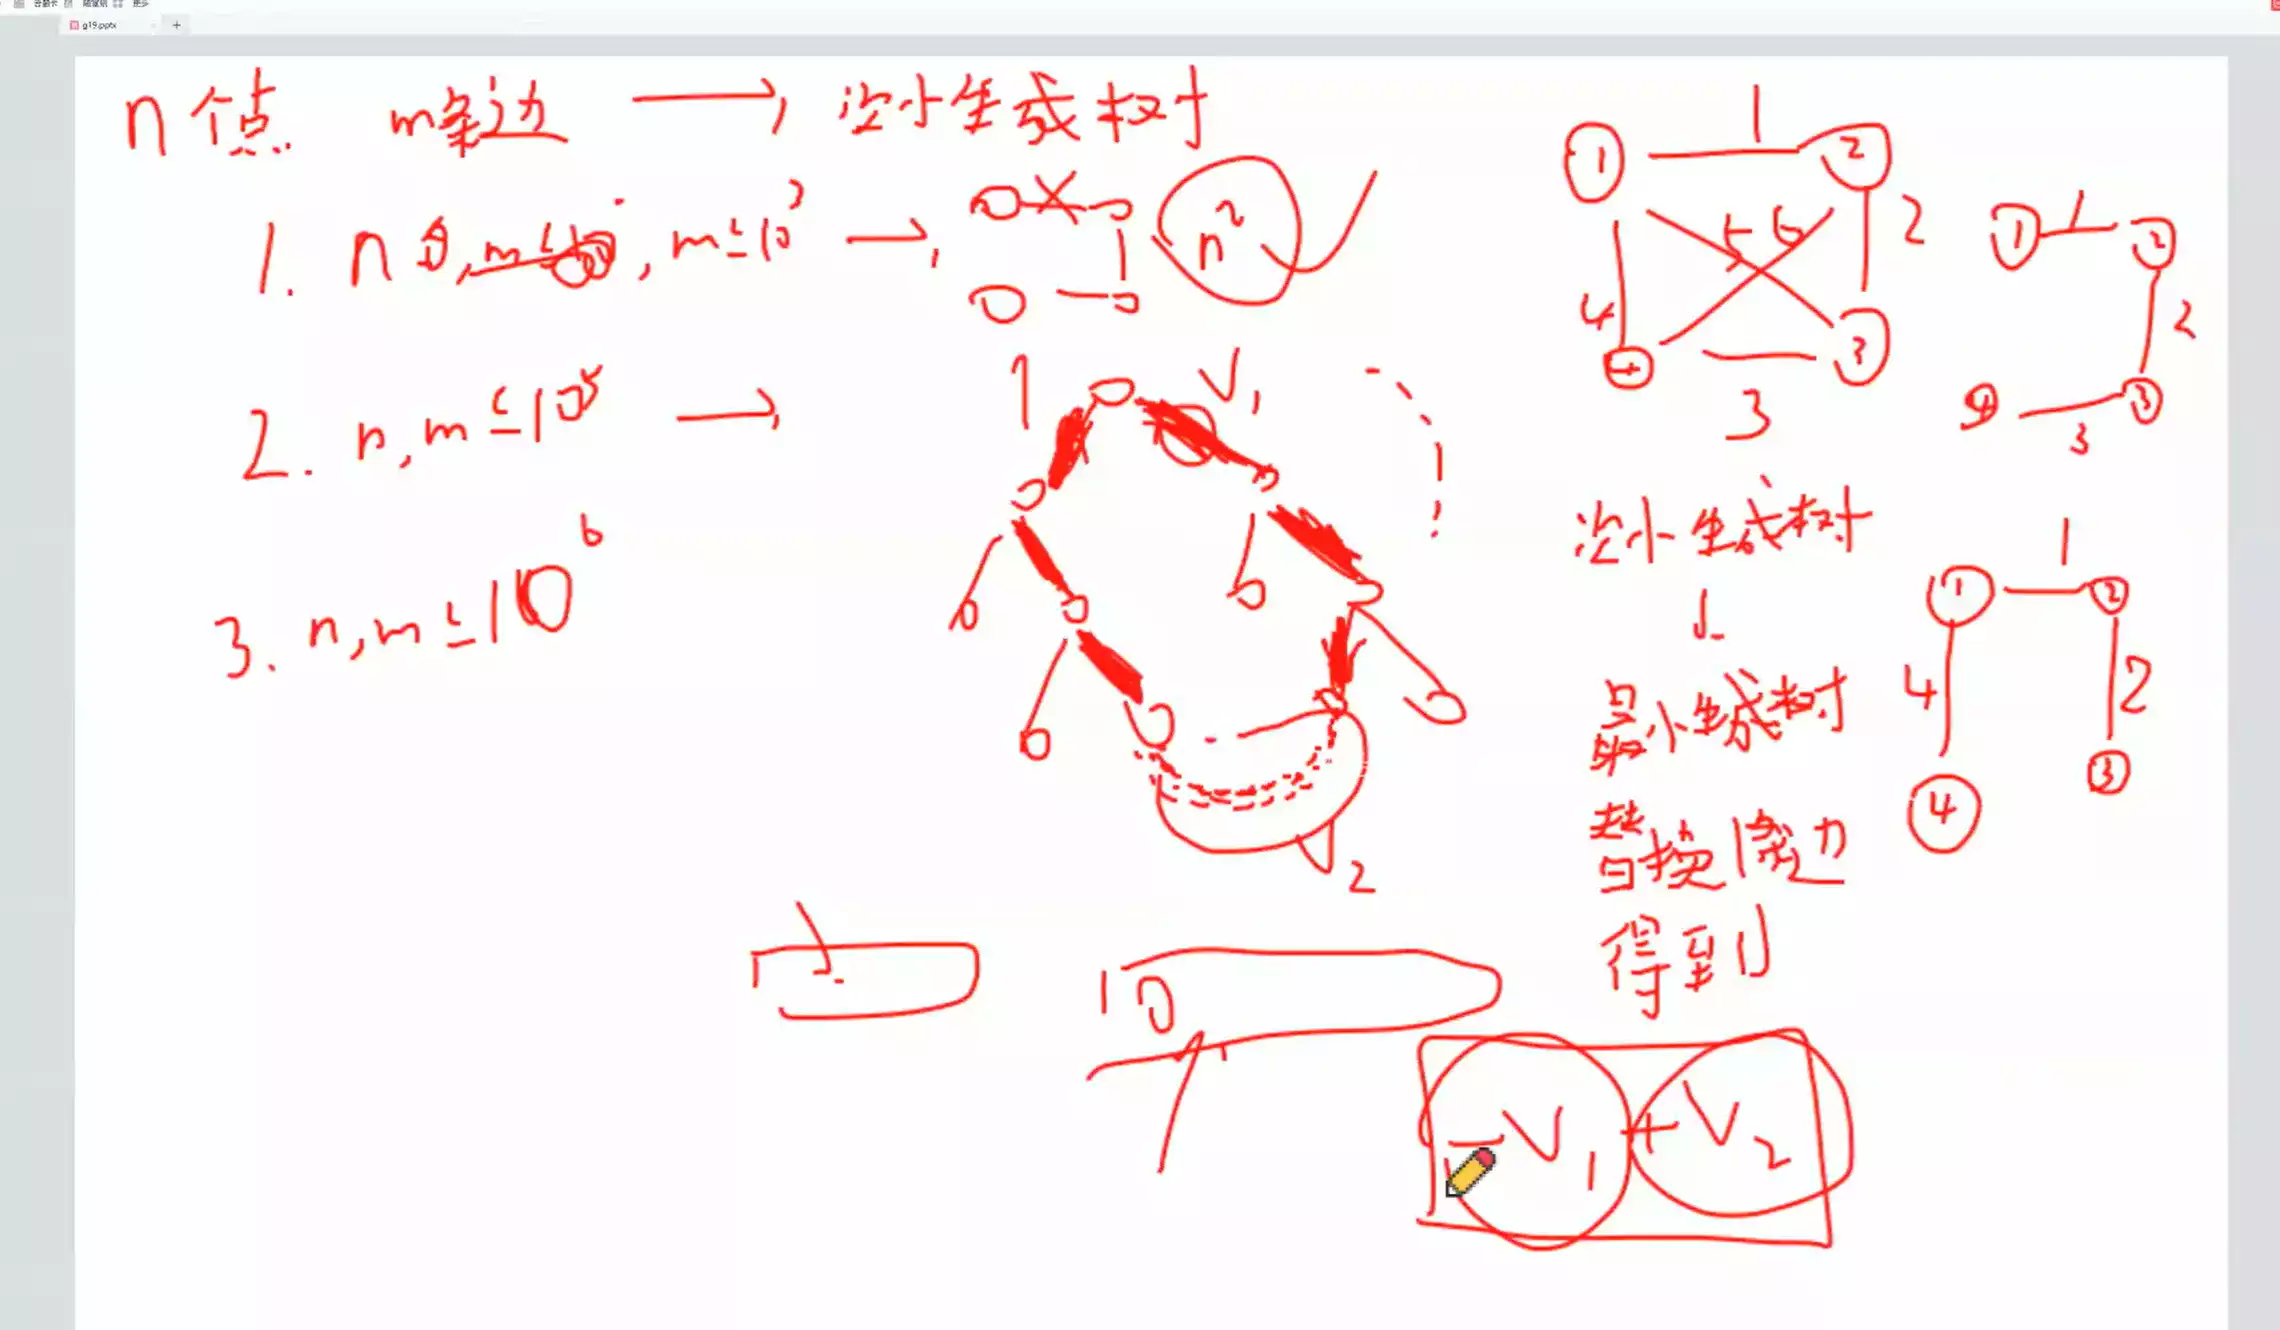 g19.pptx
n个点 m条边 → 次小生成树
1. n , m≤10³ → n²
2. n,m≤10⁵ →
3. n,m≤10⁶
1
V₁
V₂
10
① 1 ②
5 6 2
4
④ ③
3
① 1 ②
2
④ 3 ③
次小生成树
↓
最小生成树
替换1条边
得到
1
① ②
4 2
④ ③
-V₁+V₂